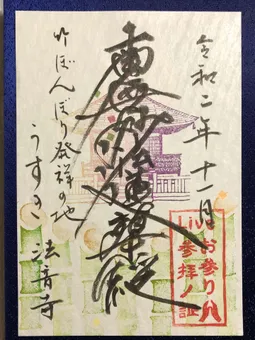 令和二年十一月
南無妙法蓮華経
竹ぼんぼり発祥の地
うすき 法音寺
Liveお参り
参拝ノ証